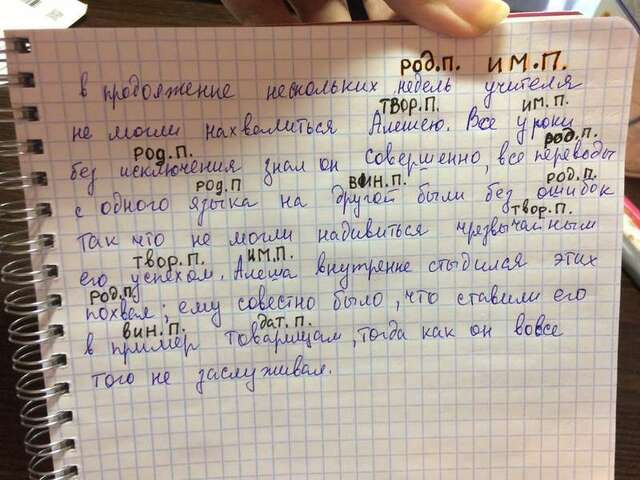 род.п. им.п.
в продолжение нескольких недель учителя
твор.п. им.п.
не могли нахвалиться Алешею. Все уроки
род.п. род.п.
без исключения знал он совершенно, все переводы
род.п вин.п. род.п.
с одного языка на другой были без ошибок
твор.п.
так что не могли надивиться чрезвычайным
твор.п. им.п.
его успехом. Алеша внутренне стыдился этих
род.п
похвал; ему совестно было, что ставили его
вин.п. дат.п.
в пример товарищам, тогда как он вовсе
того не заслуживал.